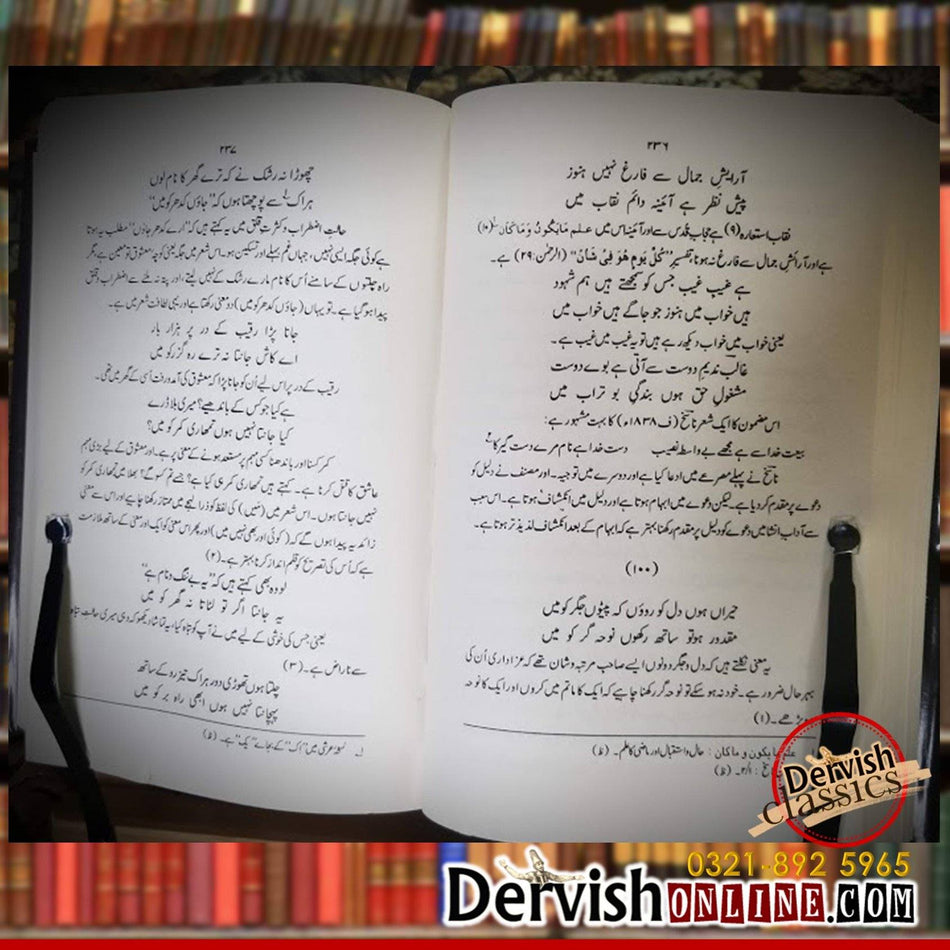 ۲۳۶
آرایشِ جمال سے فارغ نہیں ہنوز
پیشِ نظر ہے آئینہ دائم نقاب میں
نقاب استعارہ (۹) ہے حجابِ قدس سے اور آئینہ اس میں علم مَایَکُونُ وَ مَا کَانَ (۱۰)
ہے اور آرائشِ جمال سے فارغ نہ ہونا تفسیرِ "کُلَّ یَوْمٍ هُوَ فِیْ شَانْ" (الرحمٰن:۲۹) ہے۔
ہے غیبِ غیب جس کو سمجھتے ہیں ہم شہود
ہیں خواب میں ہنوز جو جاگے ہیں خواب میں
یعنی خواب میں خواب دیکھ رہے ہیں تو یہ غیب میں غیب ہے۔
غالبؔ ندیمِ دوست سے آتی ہے بوے دوست
مشغولِ حق ہوں بندگیِ بو تراب میں
اس مضمون کا ایک شعر ناسخ (ف ۱۸۳۸ء) کا بہت مشہور ہے:
بیعت خدا سے ہے مجھے بے واسطہ نصیب دستِ خدا ہے نام مرے دستگیر کا
ناسخ نے پہلے مصرعے میں ادعا کیا ہے اور دوسرے میں توجیہ۔ اور مصنف نے دلیل کو
دعوے پر مقدم کر دیا ہے۔ لیکن دعوے میں ابہام ہوتا ہے اور دلیل میں انکشاف ہوتا ہے۔ اس سبب
سے آدابِ انشا میں دعوے کو دلیل پر مقدم رکھنا بہتر ہے کہ ابہام کے بعد انکشاف لذیذ تر ہوتا ہے۔
(۱۰۰)
حیراں ہوں دل کو روؤں کہ پیٹوں جگر کو میں
مقدور ہو تو ساتھ رکھوں نوحہ گر کو میں
یہ معنی نکلتے ہیں کہ دل و جگر دونوں ایسے صاحبِ مرتبہ و شان تھے کہ عزاداری اُن کی
بہرحال ضرور ہے۔ خود نہ ہو سکے تو نوحہ گر رکھنا چاہیے کہ ایک کا ماتم میں کروں اور ایک کا نوحہ
پڑھے۔ (۱)
علم ما یکون و ما کان : حال و استقبال اور ماضی کا علم۔ (ظ)
۲/۱۔ (ظ)
۲۳۷
چھوڑا نہ رشک نے کہ ترے گھر کا نام لوں
ہر اک سے پوچھتا ہوں کہ "جاؤں کدھر کو میں"
حالتِ اضطراب و کثرتِ قلق میں یہ کہتے ہیں کہ "ارے کدھر جاؤں" مطلب یہ ہوتا
ہے کوئی جگہ ایسی نہیں، جہاں غم بہلے اور تسکین ہو۔ اس شعر میں جگہ یعنی کوچۂ معشوق تو معین ہے، مگر
راہ چلتوں کے سامنے اُس کا نام مارے رشک کے نہیں لیتے، اور پتہ نہ ملنے سے اضطراب و قلق
پیدا ہو گیا ہے۔ تو یہاں (جاؤں کدھر کو میں) دو معنی رکھتا ہے اور یہی لطافت شعر میں ہے۔
جانا پڑا رقیب کے در پر ہزار بار
اے کاش جانتا نہ ترے رہ گزر کو میں
رقیب کے در پر اس لیے اُن کو جانا پڑا کہ معشوق کی آمد و رفت اُسی کے گھر میں تھی۔
ہے کیا جو کس کے باندھیے؟ میری بلا ڈرے
کیا جانتا نہیں ہوں تمھاری کمر کو میں؟
کمر کسنا اور باندھنا کسی مہم پر مستعد ہونے کے معنی پر ہے۔ اور معشوق کے لیے بڑی مہم
عاشق کا قتل کرنا ہے۔ کہتے ہیں تمھاری کمر ہی کیا ہے؟ جسے تم کسو گے؟ بھلا میں تمھاری کمر کو
نہیں جانتا ہوں۔ اس شعر میں (میں) کی لفظ کو ذرا لہجے میں ممتاز رکھنا چاہیے اور اس سے معنی
زائد یہ پیدا ہوں گے کہ (کوئی اور بھی نہیں میں) اور پھر اس معنی کو ایک اور معنی کے ساتھ ملازمت
ہے کہ اُس کی تصریح کو قلم انداز کرنا بہتر ہے۔ (۲)
لو وہ بھی کہتے ہیں کہ "یہ بے ننگ و نام ہے"
یہ جانتا اگر تو لٹاتا نہ گھر کو میں
یعنی جس کی خوشی کے لیے میں نے آپ کو تباہ کیا، یہ تماشا دیکھو کہ وہی میری حالتِ تباہ
سے ناراض ہے۔ (۳)
چلتا ہوں تھوڑی دور ہر اک تیز رو کے ساتھ
پہچانتا نہیں ہوں ابھی راہ بر کو میں
۱۔ نسخۂ عرشی میں "اک" کے بجائے "یک" ہے۔ (ظ)
Dervish
classics
0321-892 5965
DervishONLINE.COM